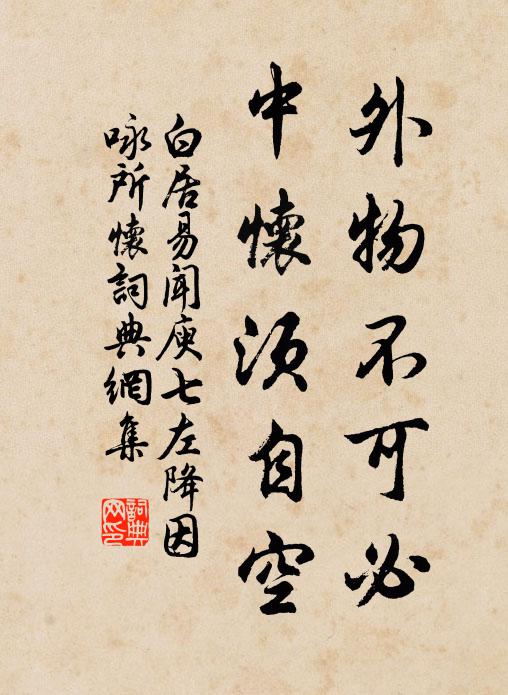 外物不可必
中懷須自空
白居易聞庾七左降因
咏所懷詞典網集
詞典
网印